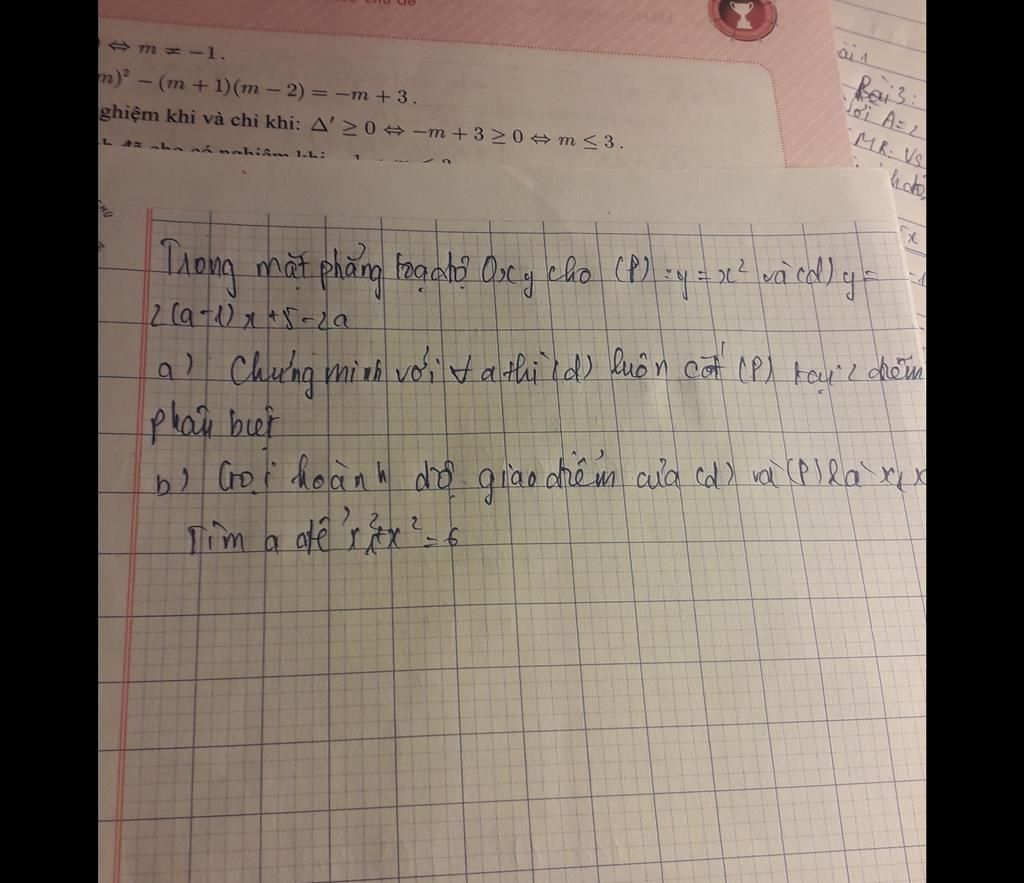 ⇔ m ≠ −1.
m)² − (m + 1)(m − 2) = −m + 3.
ghiệm khi và chỉ khi: Δ' ≥ 0 ⇔ −m + 3 ≥ 0 ⇔ m ≤ 3.
ài 1
Bài 3:
Với A = 2
Trong mặt phẳng toạ độ Oxy cho (P) : y = x² và (d) y =
2(a-1)x + 5 - 2a
a) Chứng minh với ∀ a thì (d) luôn cắt (P) tại 2 điểm
phân biệt
b) Gọi hoành độ giao điểm của (d) và (P) là x₁ x
Tìm a để x₁² + x² = 6